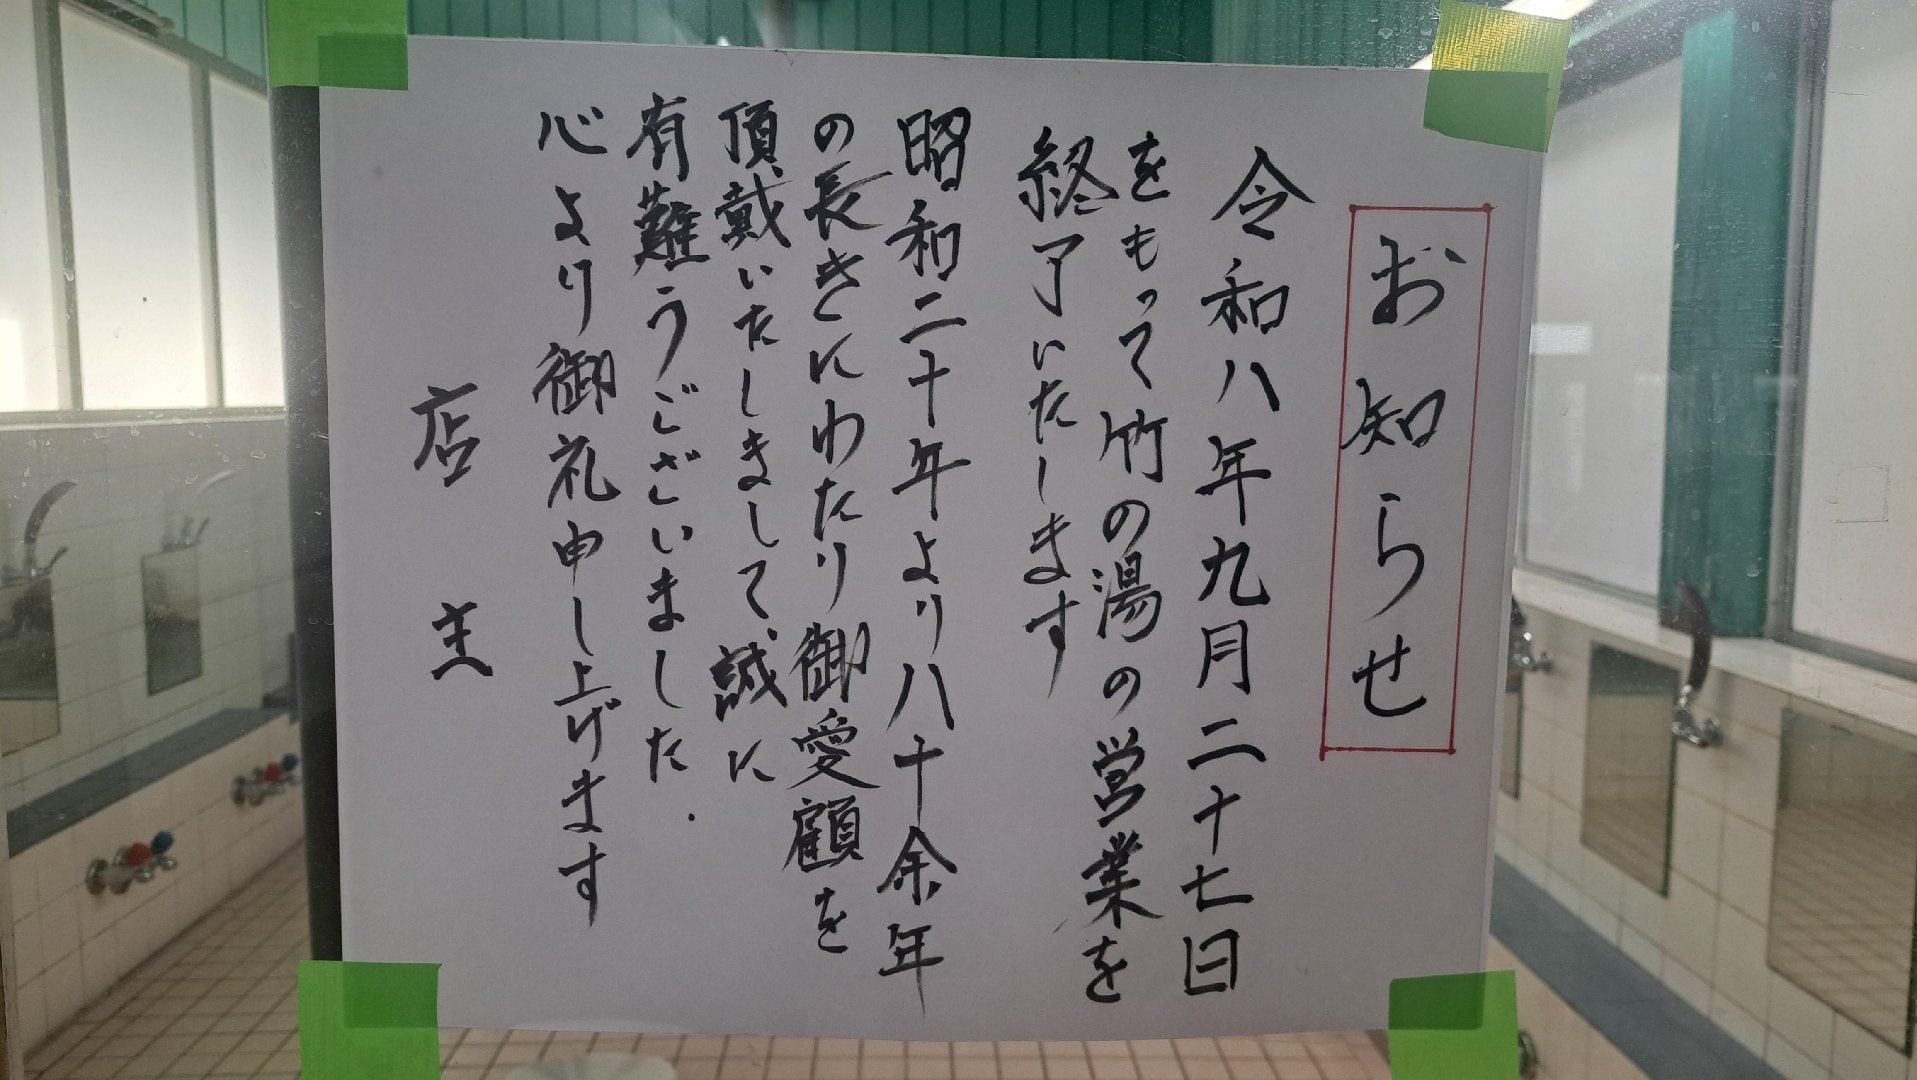 お知らせ
令和八年九月二十七日
をもって竹の湯の営業を
終了いたします
昭和二十年より八十余年
の長きにわたり御愛顧を
頂戴いたしまして、誠に
有難うございました.
心より御礼申し上げます
店主